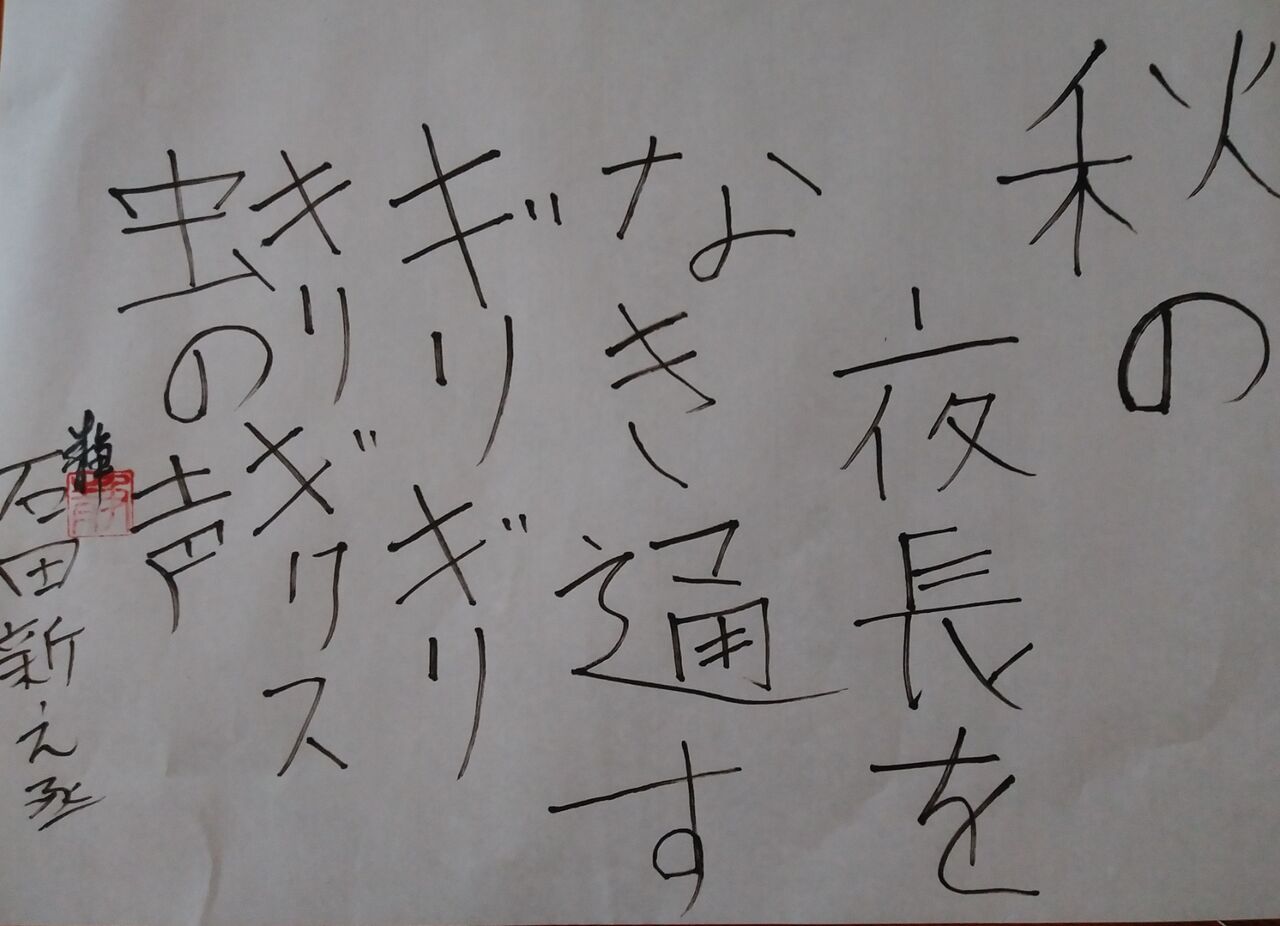 秋の
夜長を
なき通す
ギリギリ
キリギリス
虫の声
石田新え